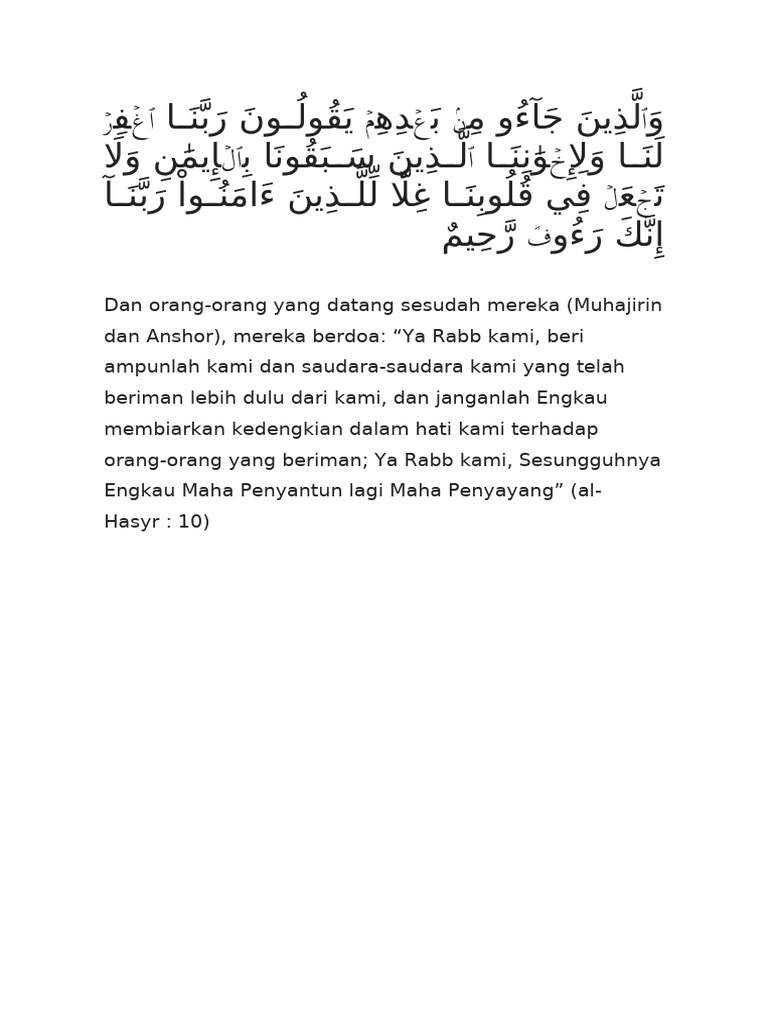 وَٱلَّذِينَ جَآءُو مِنۢ بَعۡدِهِمۡ يَقُولُونَ رَبَّنَا ٱغۡفِرۡ
لَنَا وَلِإِخۡوَٰنِنَا ٱلَّذِينَ سَبَقُونَا بِٱلۡإِيمَٰنِ وَلَا
تَجۡعَلۡ فِي قُلُوبِنَا غِلّٗا لِّلَّذِينَ ءَامَنُواْ رَبَّنَآ
إِنَّكَ رَءُوفٞ رَّحِيمٌ
Dan orang-orang yang datang sesudah mereka (Muhajirin
dan Anshor), mereka berdoa: “Ya Rabb kami, beri
ampunlah kami dan saudara-saudara kami yang telah
beriman lebih dulu dari kami, dan janganlah Engkau
membiarkan kedengkian dalam hati kami terhadap
orang-orang yang beriman; Ya Rabb kami, Sesungguhnya
Engkau Maha Penyantun lagi Maha Penyayang” (al-
Hasyr : 10)